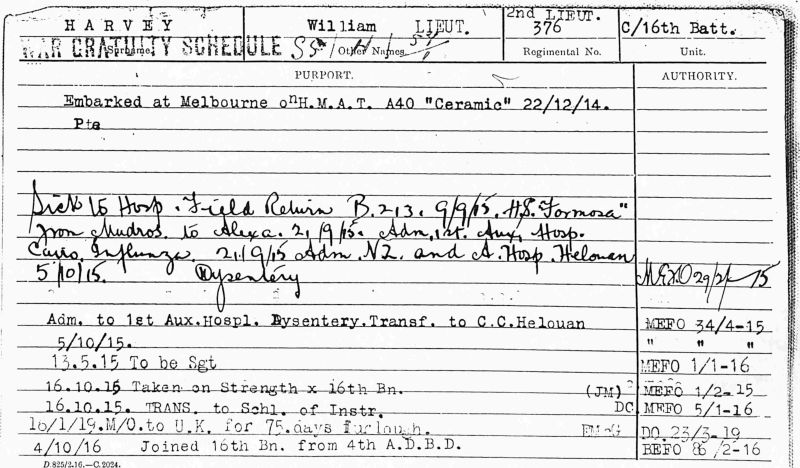 HARVEY William LIEUT. 2nd LIEUT. 376 C/16th Batt.
WAR GRATUITY SCHEDULE Surname. Other Names. Regimental No. Unit.
PURPORT. AUTHORITY.
Embarked at Melbourne on H.M.A.T. A40 "Ceramic" 22/12/14.
Pte
Sick to Hosp. Field Return B.213. 9/9/15. H.S. "Formosa"
from Mudros to Alexa. 21/9/15. Adm. 1st. Aux. Hosp.
Cairo. Influenza. 21/9/15 Adm. N.Z. and A. Hosp. Helouan
5/10/15. Dysentery 15
Adm. to 1st Aux.Hospl. Dysentery.Transf. to C.C.Helouan MEFO 34/4-15
5/10/15. " " "
13.5.15 To be Sgt MEFO 1/1-16
16.10.15 Taken on Strength x 16th Bn. (JM) MEFO 1/2-15
16.10.15. TRANS. to Schl. of Instr. DC MEFO 5/1-16
16/1/19.M/O.to U.K. for 75.days furlough. DO.23/3-19
4/10/16 Joined 16th Bn. from 4th A.D.B.D. BEFO 86 /2-16
D.825/2.16.—C.2024.